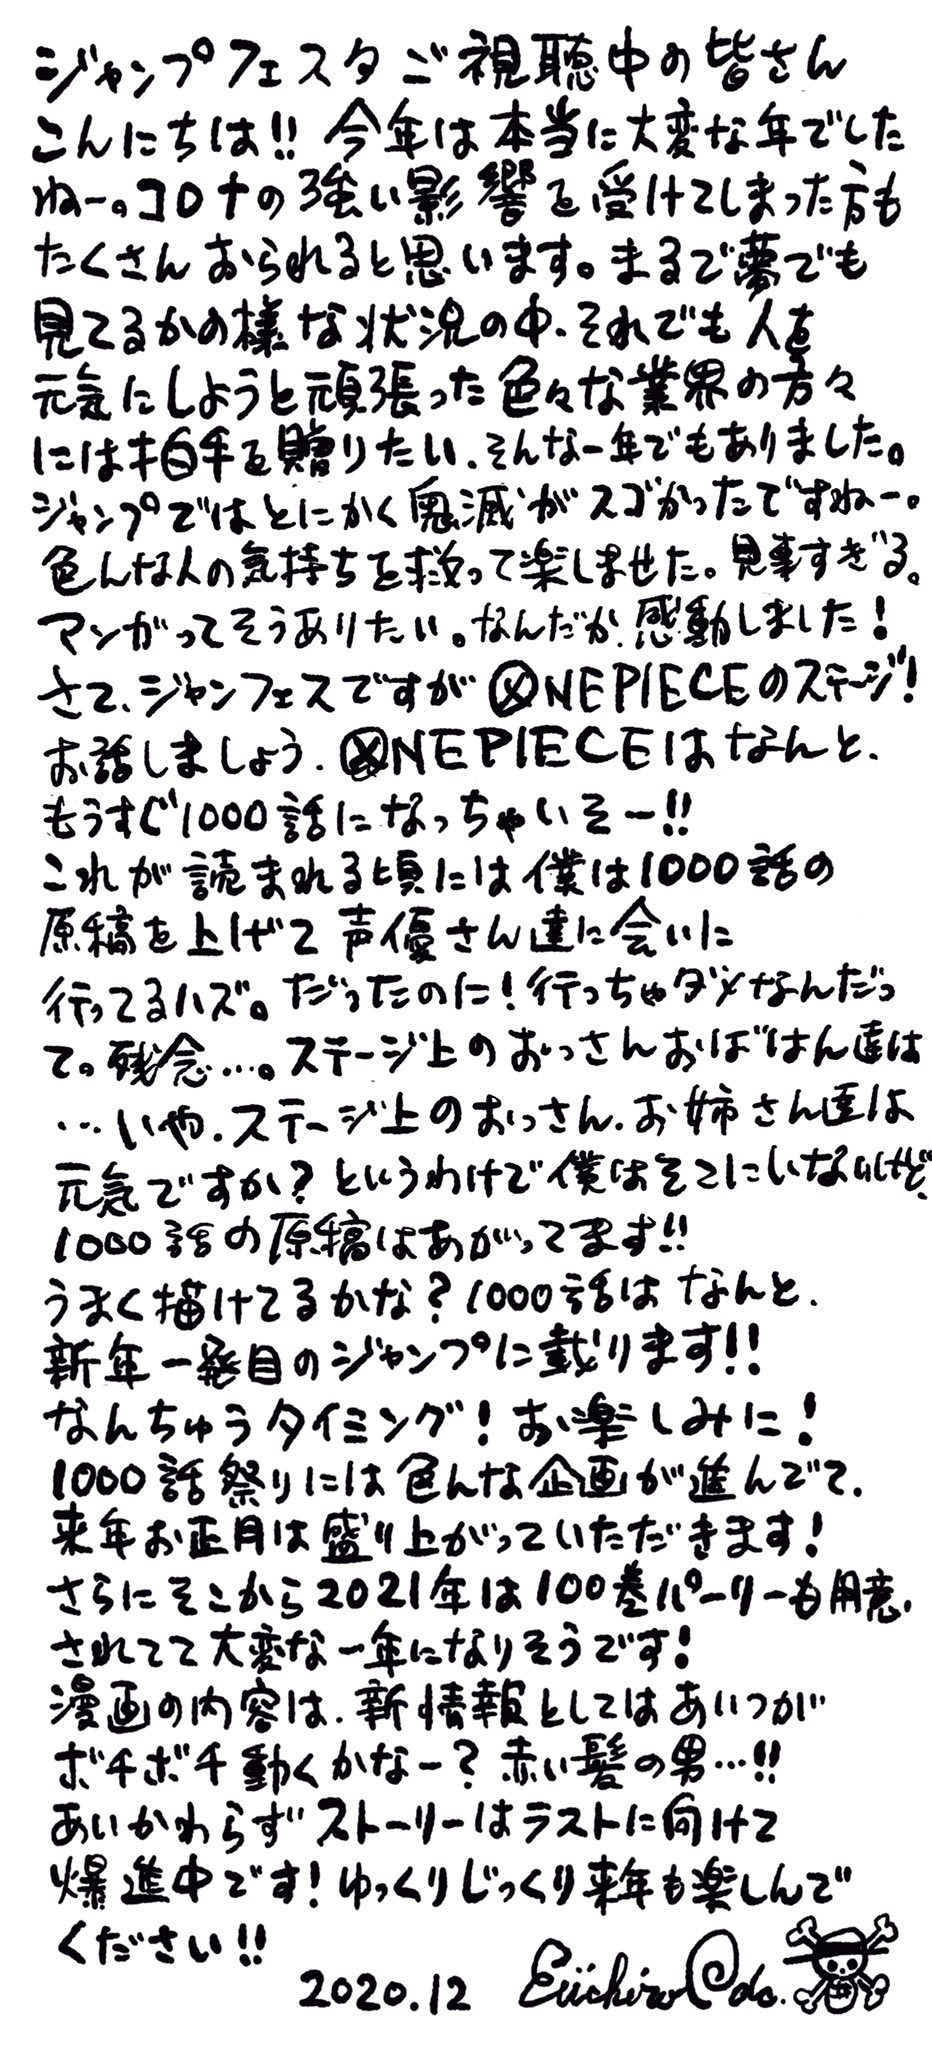 ジャンプフェスタご視聴中の皆さん
こんにちは!! 今年は本当に大変な年でした
ねー。コロナの強い影響を受けてしまった方も
たくさんおられると思います。まるで夢でも
見てるかの様な状況の中、それでも人を
元気にしようと頑張った色々な業界の方々
には拍手を贈りたい、そんな一年でもありました。
ジャンプではとにかく鬼滅がスゴかったですねー。
色んな人の気持ちを救って楽しませた。見事すぎる。
マンガってそうありたい。なんだか、感動しました!
さて、ジャンフェスですがONEPIECEのステージ!
お話しましょう、ONEPIECEはなんと、
もうすぐ1000話になっちゃいそー!!
これが読まれる頃には僕は1000話の
原稿を上げて声優さん達に会いに
行ってるハズ。だったのに!行っちゃダメなんだっ
て。残念…。ステージ上のおっさんおばはん達は
…いや、ステージ上のおっさん、お姉さん達は
元気ですか?というわけで僕はそこにいないけど、
1000話の原稿はあがってます!!
うまく描けてるかな?1000話はなんと、
新年一発目のジャンプに載ります!!
なんちゅうタイミング!お楽しみに!
1000話祭りには色んな企画が進んでて、
来年お正月は盛り上がっていただきます!
さらにそこから2021年は100巻パーリーも用意、
されてて大変な一年になりそうです!
漫画の内容は、新情報としてはあいつが
ボチボチ動くかなー?赤い髪の男…!!
あいかわらずストーリーはラストに向けて
爆進中です!ゆっくりじっくり来年も楽しんで
ください!!
2020.12 Eiichiro Oda.